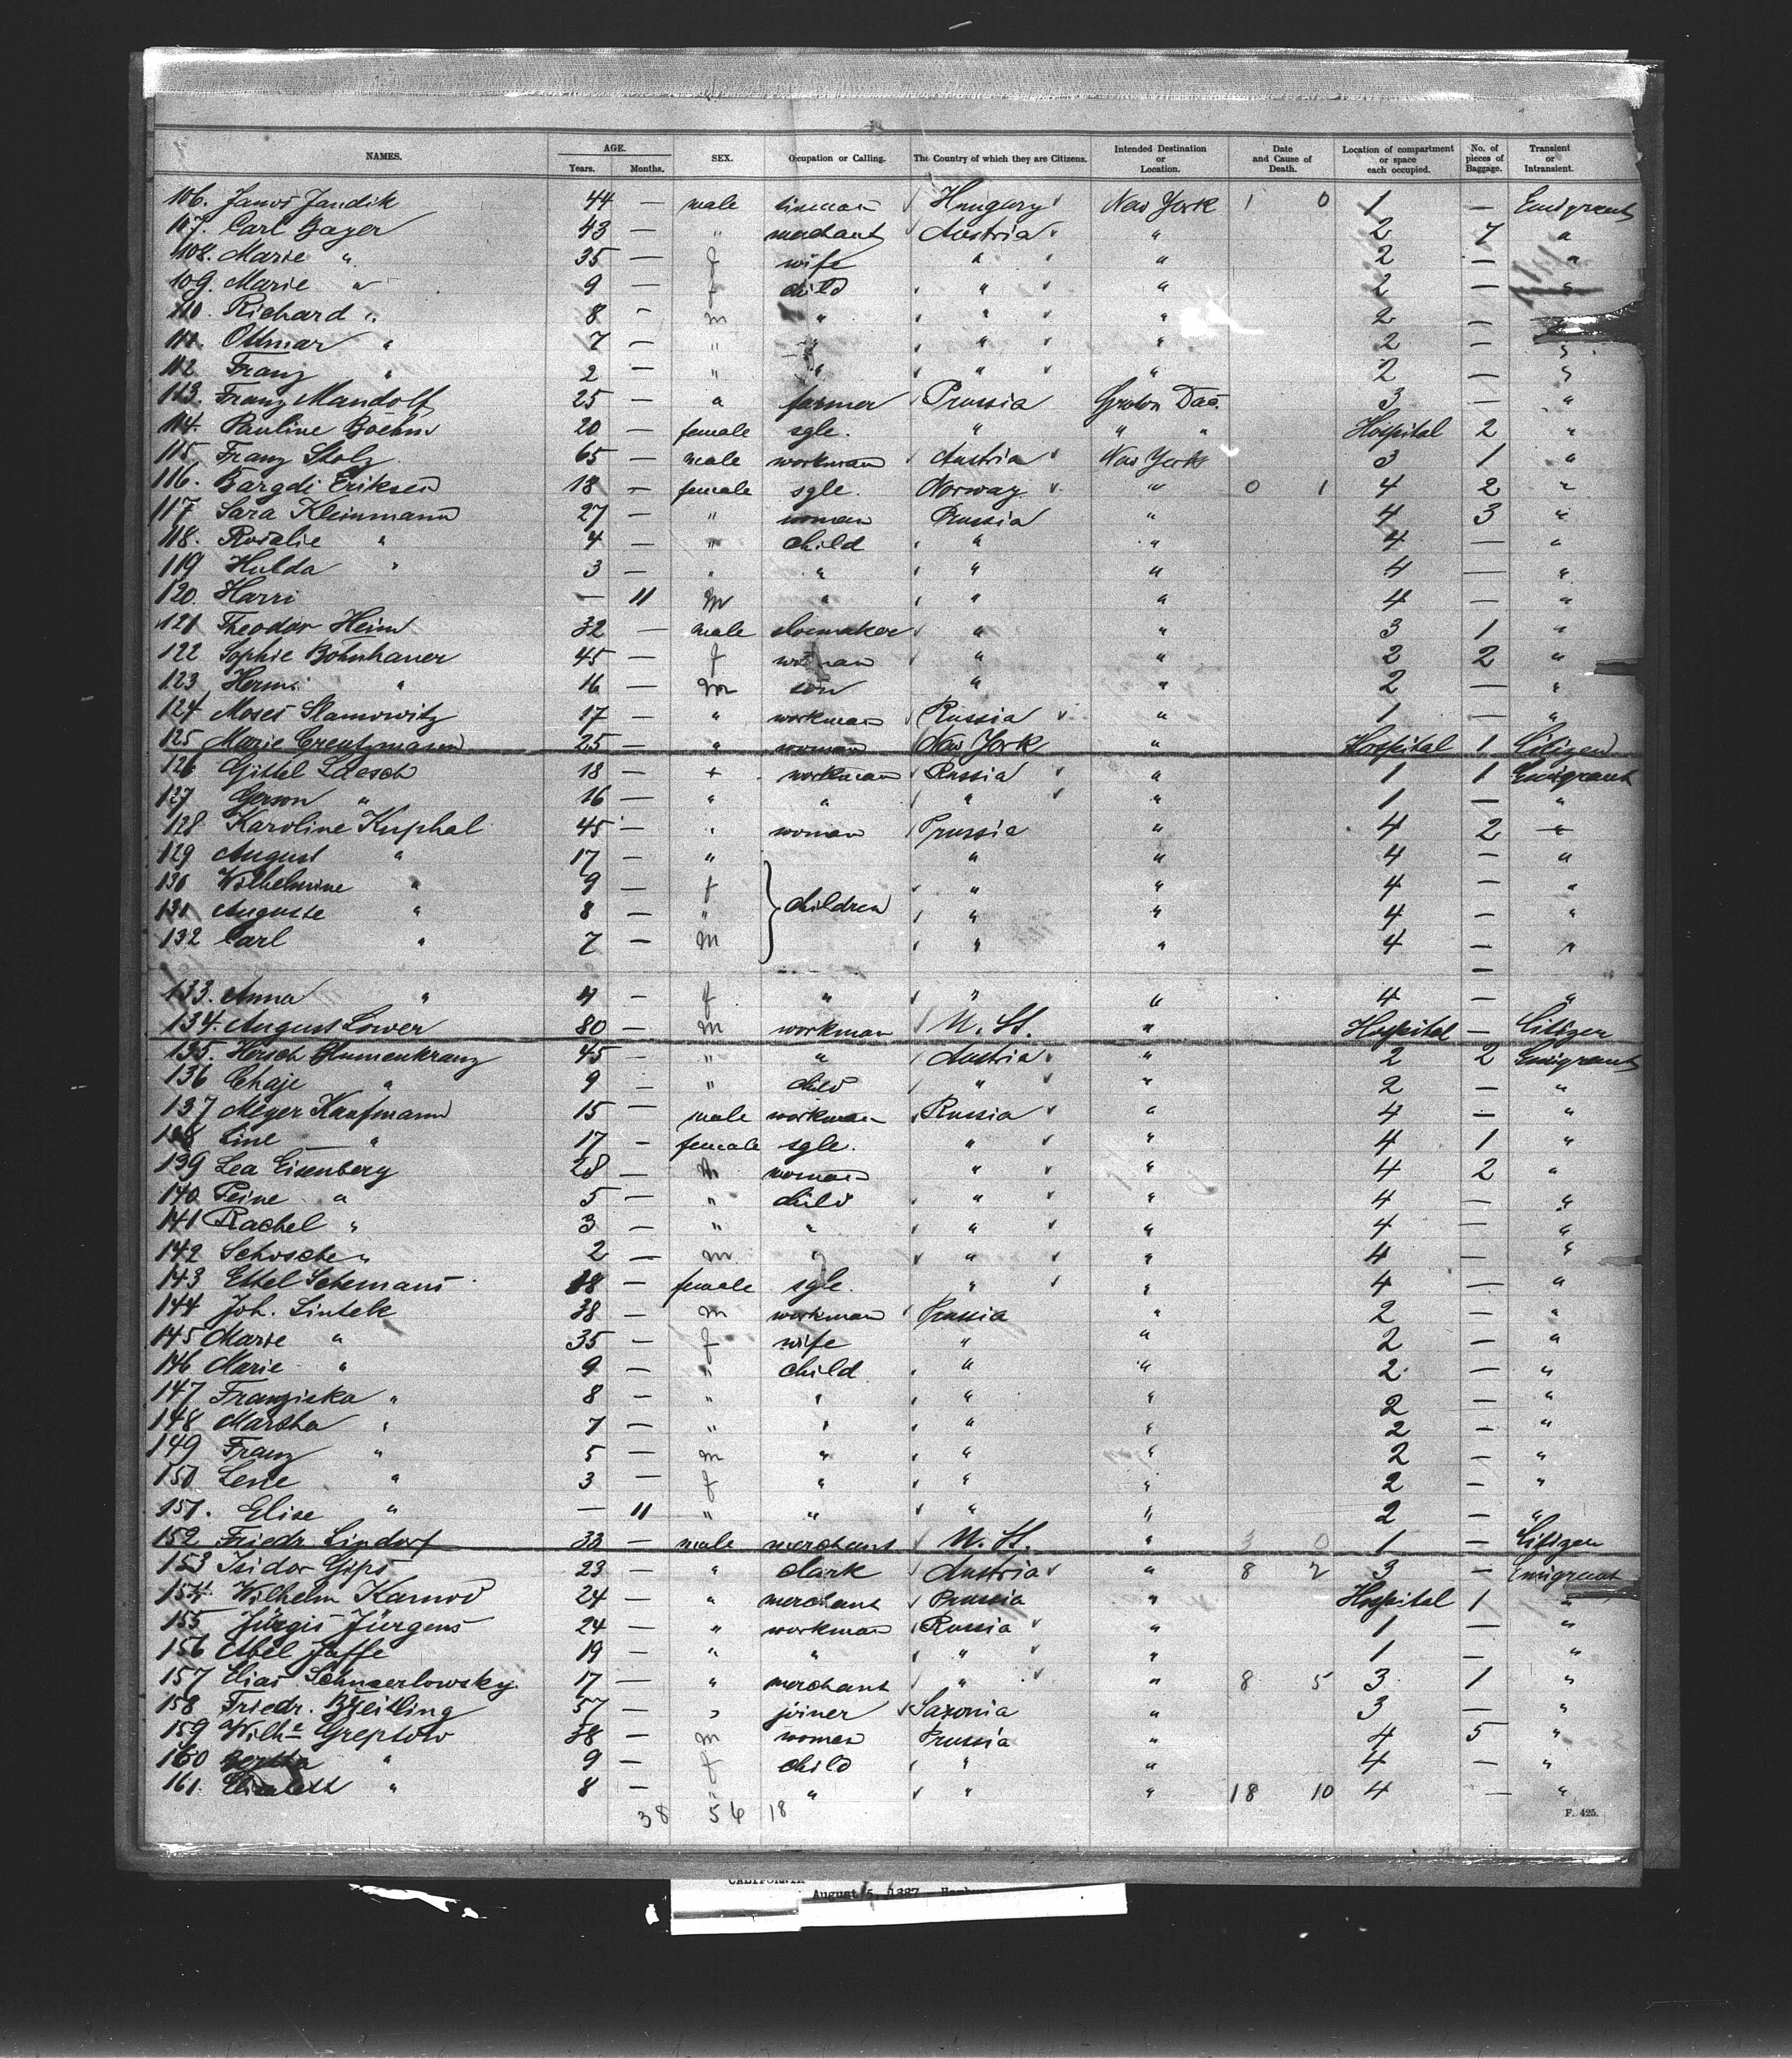 NAMES. AGE. Years. Months. SEX. Occupation or Calling. The Country of which they are Citizens. Intended Destination or Location. Date and Cause of Death. Location of compartment or space each occupied. No. of pieces of Baggage. Transient or Intransient.
106. Janos Jandik 44 — male Hungary New York 1 0 1 — Emigrant
107. Carl Bager 43 — " merchant Austria " 2 7 "
108. Marie " 35 — f wife " " 2 — "
109. Marie " 9 — f child " " 2 — "
110 Richard " 8 — m " " " 2 — "
111. Ottmar " 7 — " " " " 2 — "
112 Franz " 2 — " " " " 2 — "
113. Franz Mandolf 25 — " farmer Prussia Groton Dac. 3 — "
114. Pauline Boehm 20 — female sgle. " " " Hospital 2 "
115. Franz Stolz 65 — male workman Austria New York 3 1 "
116. Bargdi Eriksen 18 — female sgle. Norway " 0 1 4 2 "
117 Sara Kleinmann 27 — " woman Prussia " 4 3 "
118. Rosalie " 4 — " child " " 4 — "
119 Hulda " 3 — " " " " 4 — "
120. Harri — 11 m " " " 4 — "
121 Theodor Heim 32 — male shoemaker " " 3 1 "
122 Sophie Bohnhauer 45 — f woman " " 2 2 "
123 " 16 — m son " " 2 — "
124 Moses Slamowitz 17 — " workman Russia " 1 — "
125 Marie Creutzmann 25 — " woman New York " Hospital 1 Citizen
126 Gittel Laesch 18 — + workman Russia " 1 1 Emigrant
127 Gerson " 16 — " " " " 1 — "
128 Karoline Kuphal 45 — " woman Prussia " 4 2 "
129 August " 17 — " " " 4 — "
130 Wilhelmine " 9 — f children " " 4 — "
131 Auguste " 8 — " " " 4 — "
132 Carl " 7 — m " " 4 — "
133. Anna " 4 — f " " " 4 — "
134. August Lower 80 — m workman U. St. " Hospital — Citizen
135. Hersch Blumenkranz 45 — " " Austria " 2 2 Emigrant
136 Chaje " 9 — " child " " 2 — "
137 Meyer Kaufmann 15 — male workman Russia " 4 — "
138 Line " 17 — female sgle. " " 4 1 "
139 Lea Eisenberg 28 — " woman " " 4 2 "
140 Peine " 5 — " child " " 4 — "
141 Rachel " 3 — " " " " 4 — "
142 Schosche " 2 — m " " " 4 — "
143 Ettel 18 — female sgle. " " 4 — "
144 Joh. Lintek 38 — m workman Prussia " 2 — "
145 Marie " 35 — f wife " " 2 — "
146 Marie " 9 — " child " " 2 — "
147 Franziska " 8 — " " " " 2 — "
148 Martha " 7 — " " " " 2 — "
149 Franz " 5 — m " " " 2 — "
150 Lene " 3 — f " " " 2 — "
151. Elise " — 11 " " " " 2 — "
152 Friedr. Lindorf 33 — male merchant U. St. " 3 0 1 — Citizen
153 Isidor Gips 23 — " clark Austria " 8 2 3 — Emigrant
154. Wilhelm Karnod 24 — " merchant Prussia " Hospital 1 "
155 Jürgis Jürgens 24 — " workman Russia " 1 — "
156 Abel Jaffe 19 — " " " " 1 — "
157 Elias Schnaerlowsky 17 — " merchant " " 8 5 3 1 "
158 Friedr. 57 — " joiner Saxonia " 3 — "
159 Wilhe Greptow 38 — m woman Prussia " 4 5 "
160 Bertha " 9 — f child " " 4 — "
161. Elisabeth " 8 — " " " " 18 10 4 — "
38 54 18
F. 425.
CALIFORNIA
August 5, 1887 - Hamburg